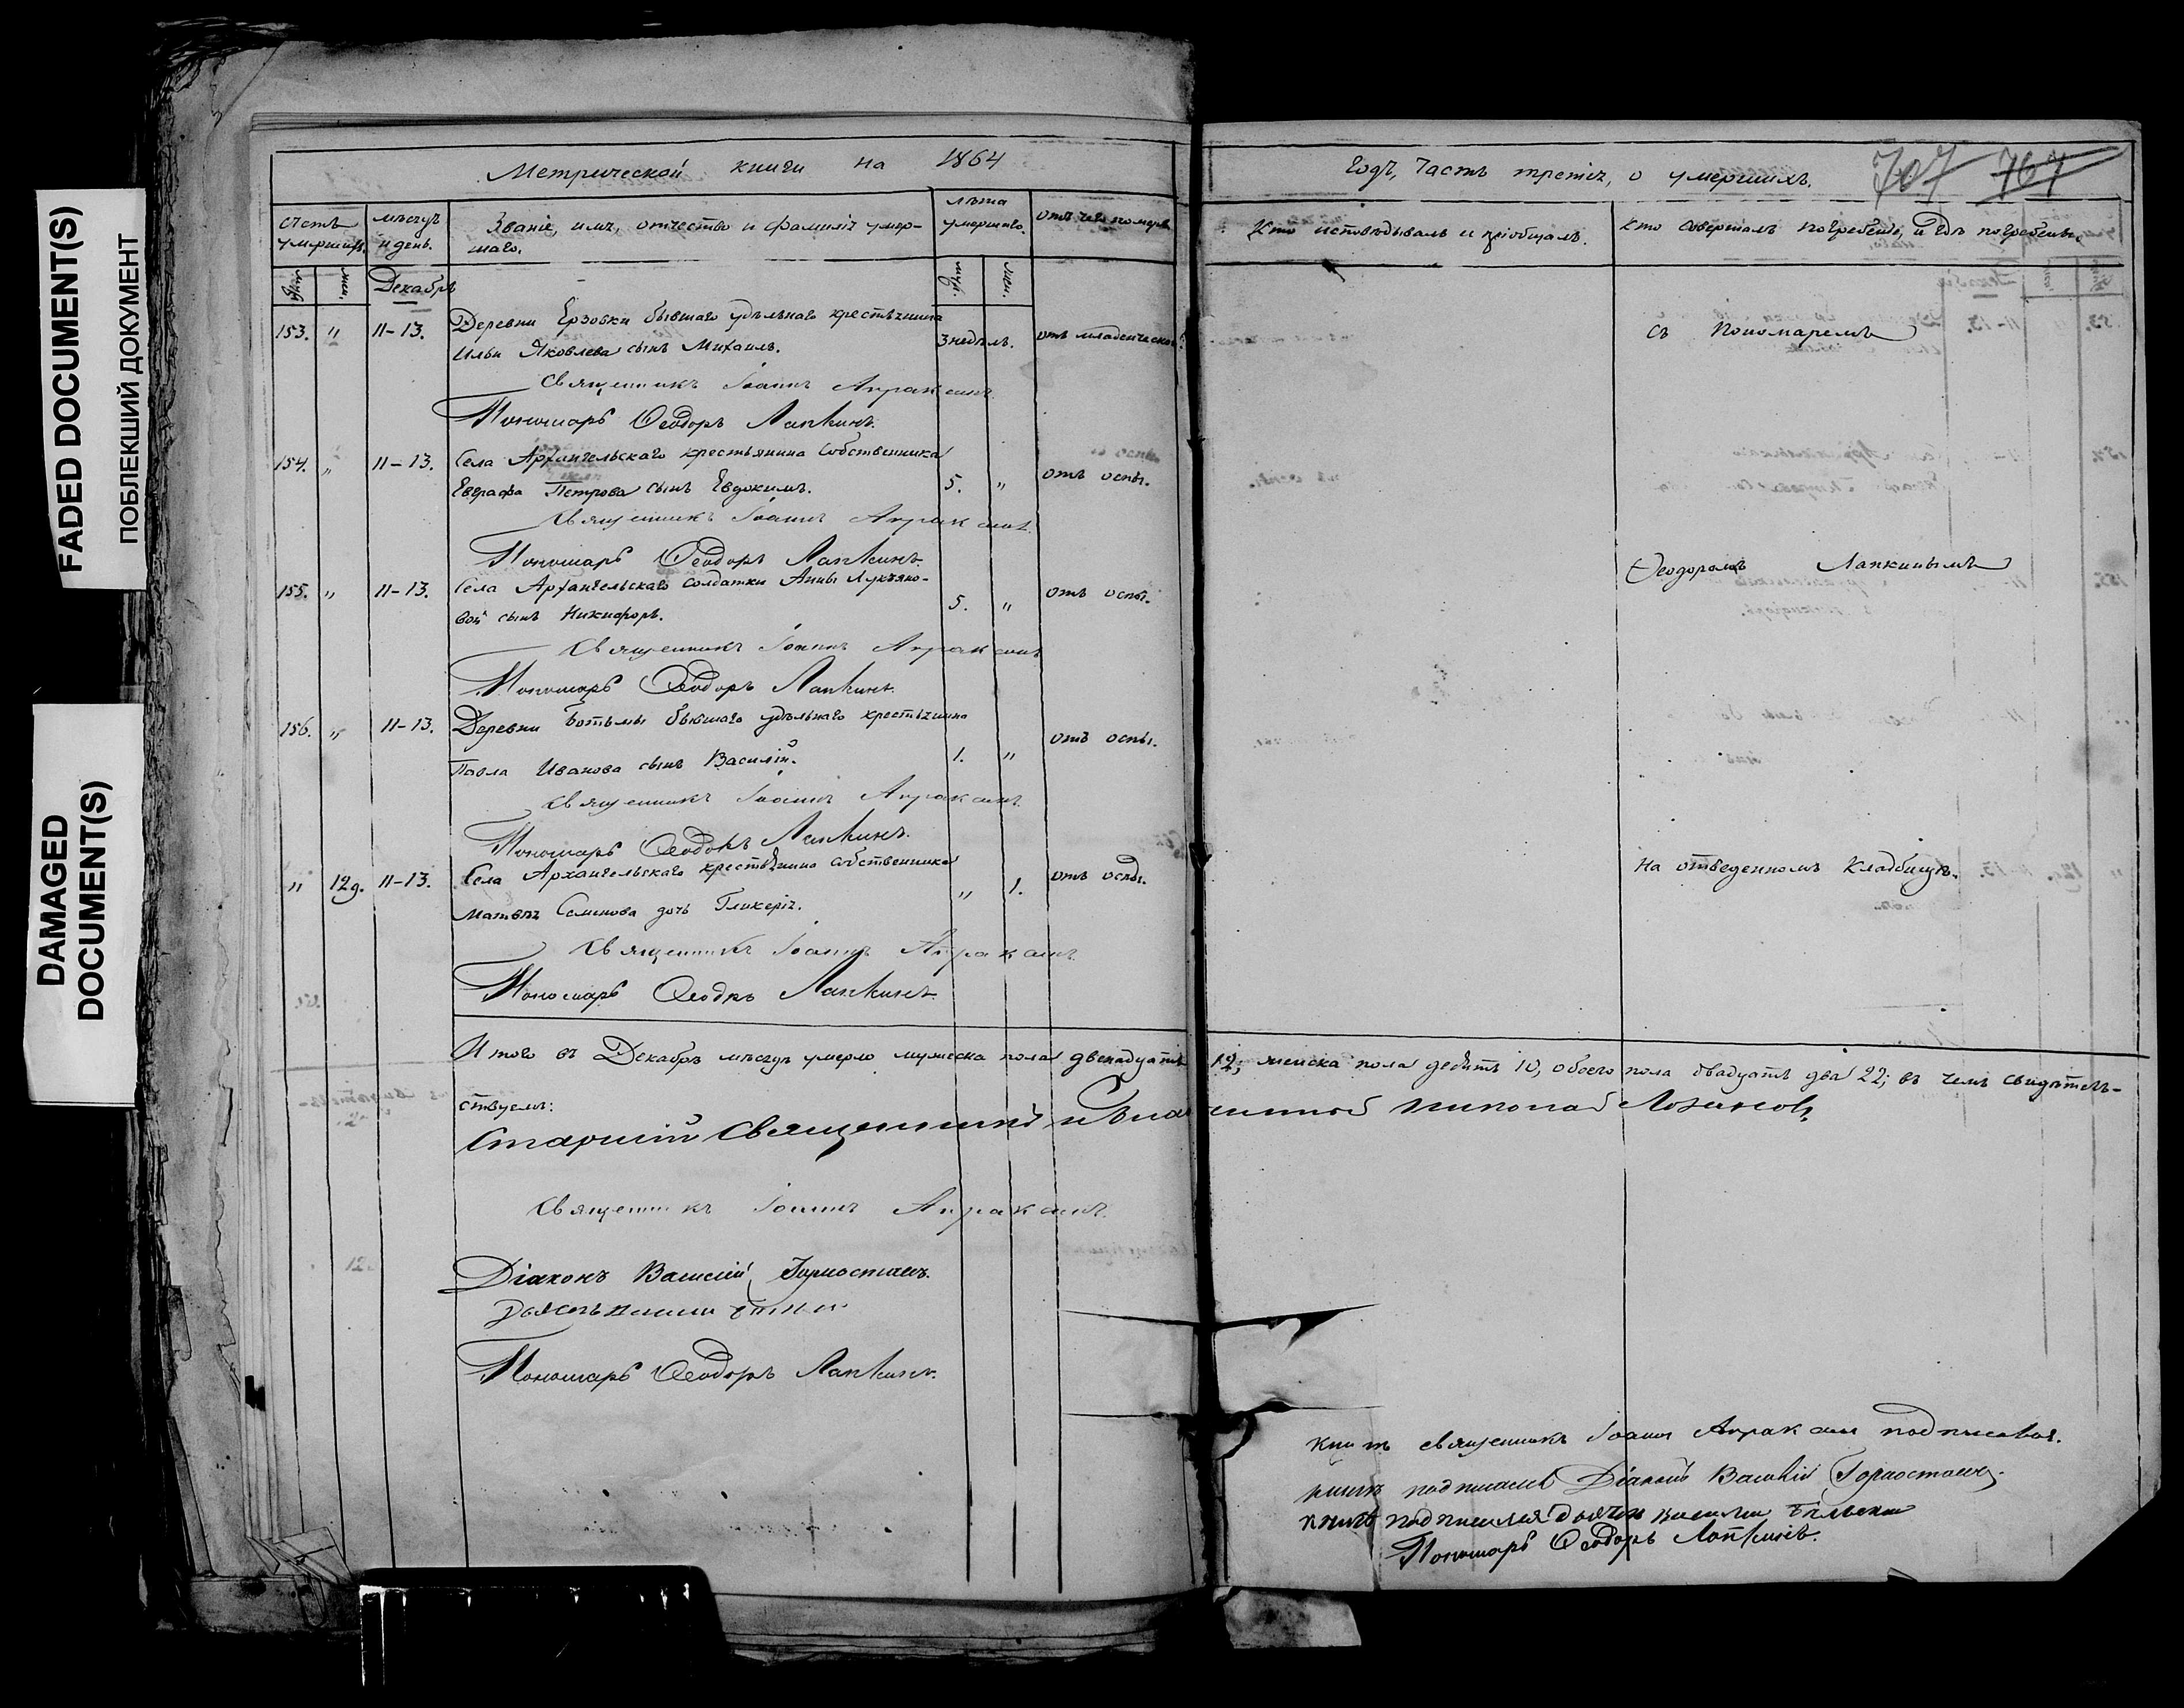 FADED DOCUMENT(S)
ПОБЛЕКШИЙ ДОКУМЕНТ
DAMAGED DOCUMENT(S)
Метрической книги на 1864
Счетъ умершихъ.
мѣсяцъ и день.
Званіе, имя, отчество и фамилія умер-
шаго.
лѣта умершаго.
отъ чего померъ
муж.
жен.
Декабрь
муж.
жен.
153. " 11-13. Деревни Ерзовки бывшаго удѣльнаго крестьянина
Ильи Яковлева сынъ Михаилъ. 3 недѣль. отъ младенческой
Священникъ Іоаннъ Апраксинъ
Пономарь Ѳеодоръ Лапкинъ.
154. " 11-13. Села Архангельскаго крестьянина собственника
Евграфа Петрова сынъ Евдокимъ. 5. " отъ оспы.
Священникъ Іоаннъ Апраксинъ
Пономарь Ѳеодоръ Лапкинъ.
155. " 11-13. Села Архангельскаго солдатки Анны Лукьяно-
вой сынъ Никифоръ. 5. " отъ оспы.
Священникъ Іоаннъ Апраксинъ
Пономарь Ѳеодоръ Лапкинъ.
156. " 11-13. Деревни Ботьмы бывшаго удѣльнаго крестьянина
Павла Иванова сынъ Василій. 1. " отъ оспы.
Священникъ Іоаннъ Апраксинъ
Пономарь Ѳеодоръ Лапкинъ.
" 129. 11-13. Села Архангельскаго крестьянина собственника
Матвѣя Семенова дочь Гликерія. " 1. отъ оспы.
Священникъ Іоаннъ Апраксинъ
Пономарь Ѳеодръ Лапкинъ.
Итого въ Декабрѣ мѣсяцѣ умерло мужеска пола двенадцать
ствуемъ:
Старшій Священникъ
Священникъ Іоаннъ Апраксинъ.
Діаконъ Василій Горностаевъ.
Пономарь Ѳеодоръ Лапкинъ.
годъ, часть третія, о умершихъ.
707 767
Кто исповѣдывалъ и пріобщалъ.
Кто совершалъ погребеніе, и гдѣ погребены.
съ Пономаремъ
Ѳеодоромъ Лапкинымъ
на отведенномъ кладбищѣ.
12; женска пола десять 10, обоего пола двадцать два 22; въ чемъ свидѣтель-
Николай
священникъ Іоаннъ Апраксинъ подписался.
книгѣ подписался Діаконъ Василій Горностаевъ.
книгѣ подписался дьячекъ Василий Бѣльский
Пономарь Ѳеодоръ Лапкинъ.